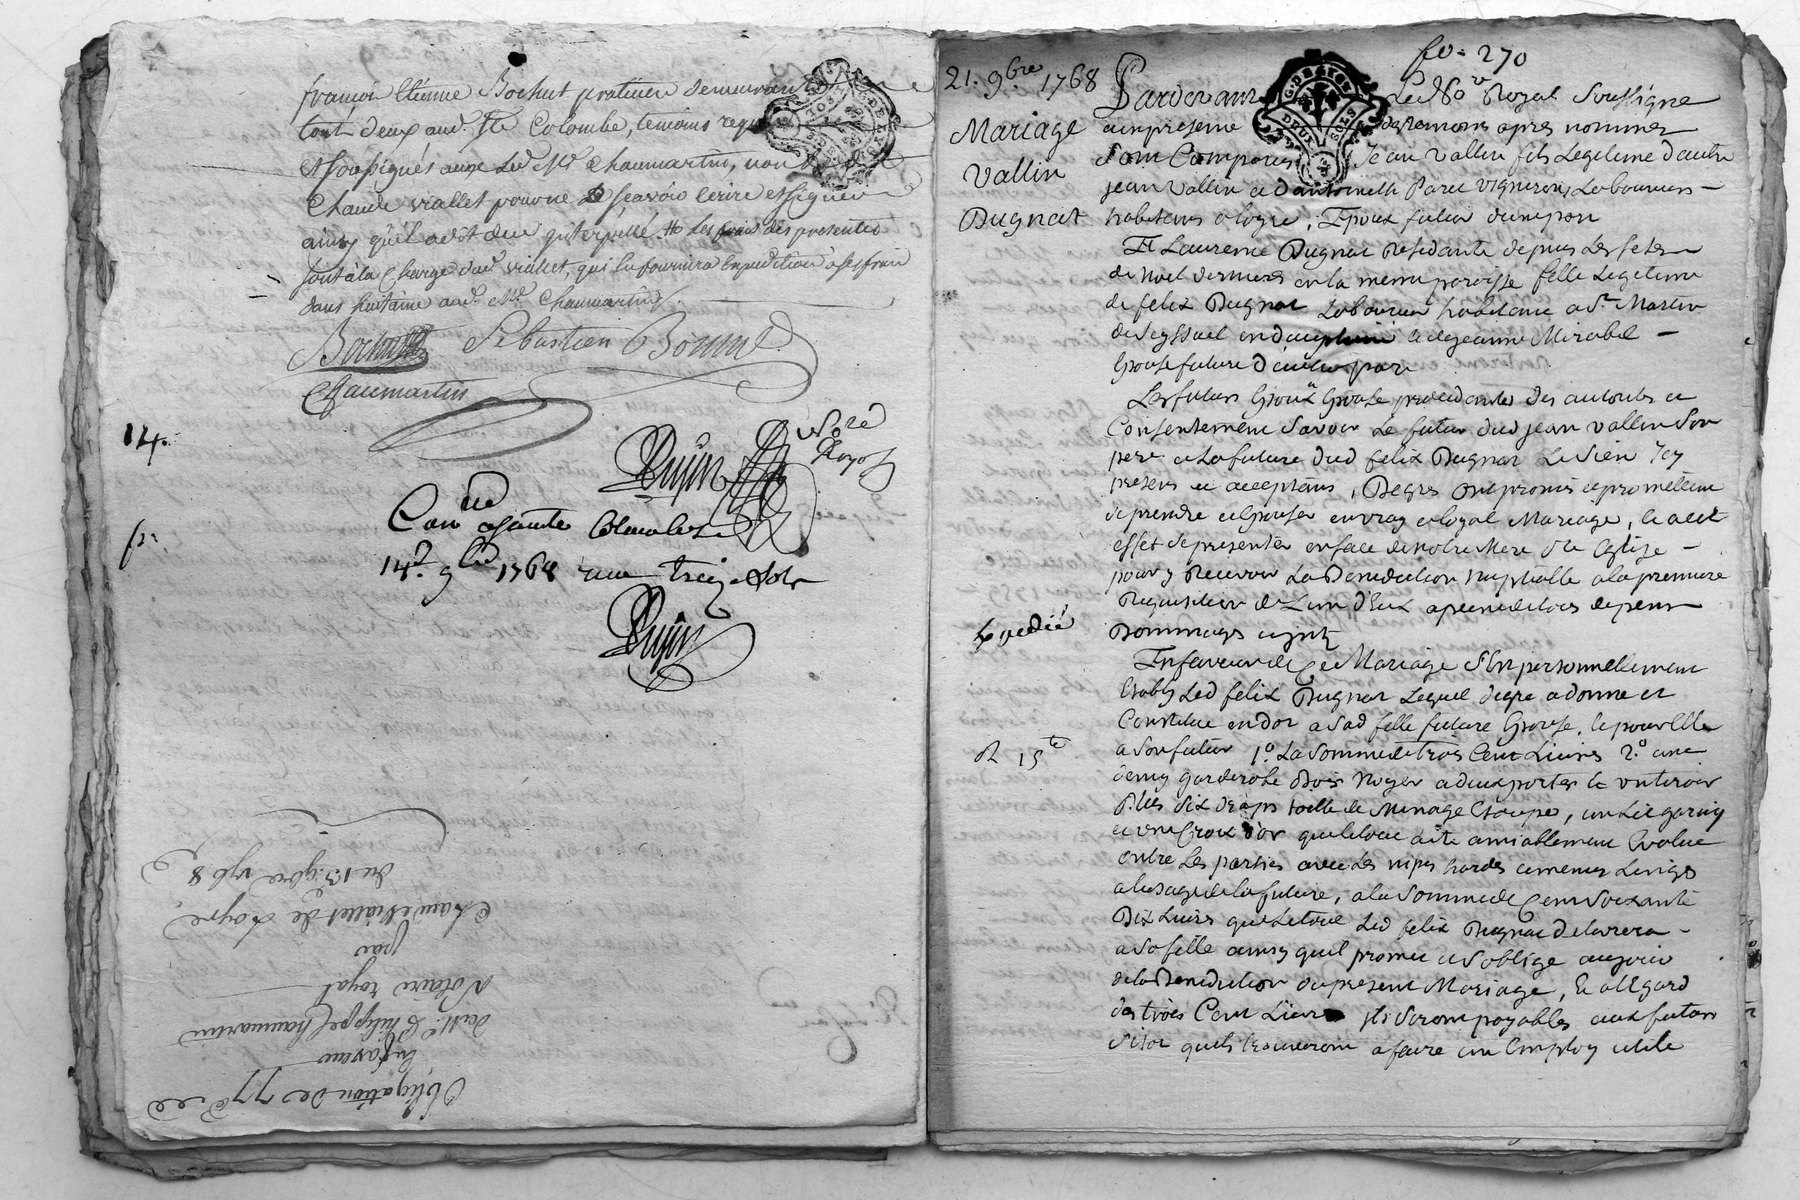 françois Etienne Bochut praticien demeurants
tout deux aud. Ste Colombe, temoins requis
et soussignés avec led. Mr. Chaumartin, non led.
Claude viallet pour ne sçavoir ecrire et signer
ainsy qu'il a dit de ce interpellé. les frais des presentes
sont a la Charge dud. viallet, qui luy fournira Expedition a ses frais
dans huitaine aud. Mr. Chaumartin
Bochut Sebastien Bonnet
Chaumartin
14.
Dujin nore Royal
Con.lle a Condrieu
14. 9bre 1768 treize sols
Dujin
du 13. 9bre 1768
Claude viallet de Loyre
par
Notaire royal
de Mr. Philippe Chaumartin
En faveur
Obligation de 77
fo. 270
21. 9bre 1768
Mariage
Vallin
Dugnat
Pardevant Le No.re Royal Soussigné
et en presence des temoins apres nommés
Sont Comparus Jean Vallin fils Legitime d'autre
jean Vallin et d'antoinette Paret vigneron, Laboureurs
habitans a logre, Epoux futur d'une part
Et Laurence Dugnat Residante depuis Les fetes
de Noel dernieres en la meme paroisse fille Legitime
de felix Dugnat Laboureur habitant a St. Martin
de Seyssuel en dauphiné et de jeanne Mirabel
Epouse future d'autre part
Les futurs Epoux Epouse procedants des autorités et
Consentement Savoir Le futur dud jean vallin Son
pere et La future dud felix Dugnat Le Sien Icy
presens et acceptans, De gre ont promis et promettent
se prendre et Epouser en vray et loyal Mariage, et a cet
effet se presenter en face de notre Mere Ste Eglise
pour y Recevoir La Benediction Nuptialle a la premiere
Requisition de L'un d'Eux a peine de tous depens
Dommages et jnts
Expedié
En faveur de Ce Mariage s'Est personnellement
Etably Led felix Dugnat Lequel de gre a donne et
Constitue en dot a Sad fille future Epouse, et pour Elle
R 15 te
a Son futur 1.o La Somme de trois Cent Livres 2.o une
demy garderobe Bois Noyer a deux portes et un tiroir
Plus Six draps toille de Menage Etoupe, un Lit garny
et une Croix d'or que le tout a été amiablement Evalué
entre Les parties avec Les nipes hardes et menus Linges
a l'usage de La future, a La Somme de Cent Soixante
Dix Livres que Le tout Led felix Dugnat delivrera
a Sa fille ainsy qu'il promet et S'oblige au jour
de La Benediction du present Mariage, Et a l'Egard
des trois Cent Livres ils Seront payables aux futurs
Sitot qu'ils trouveront a faire un Employ utile